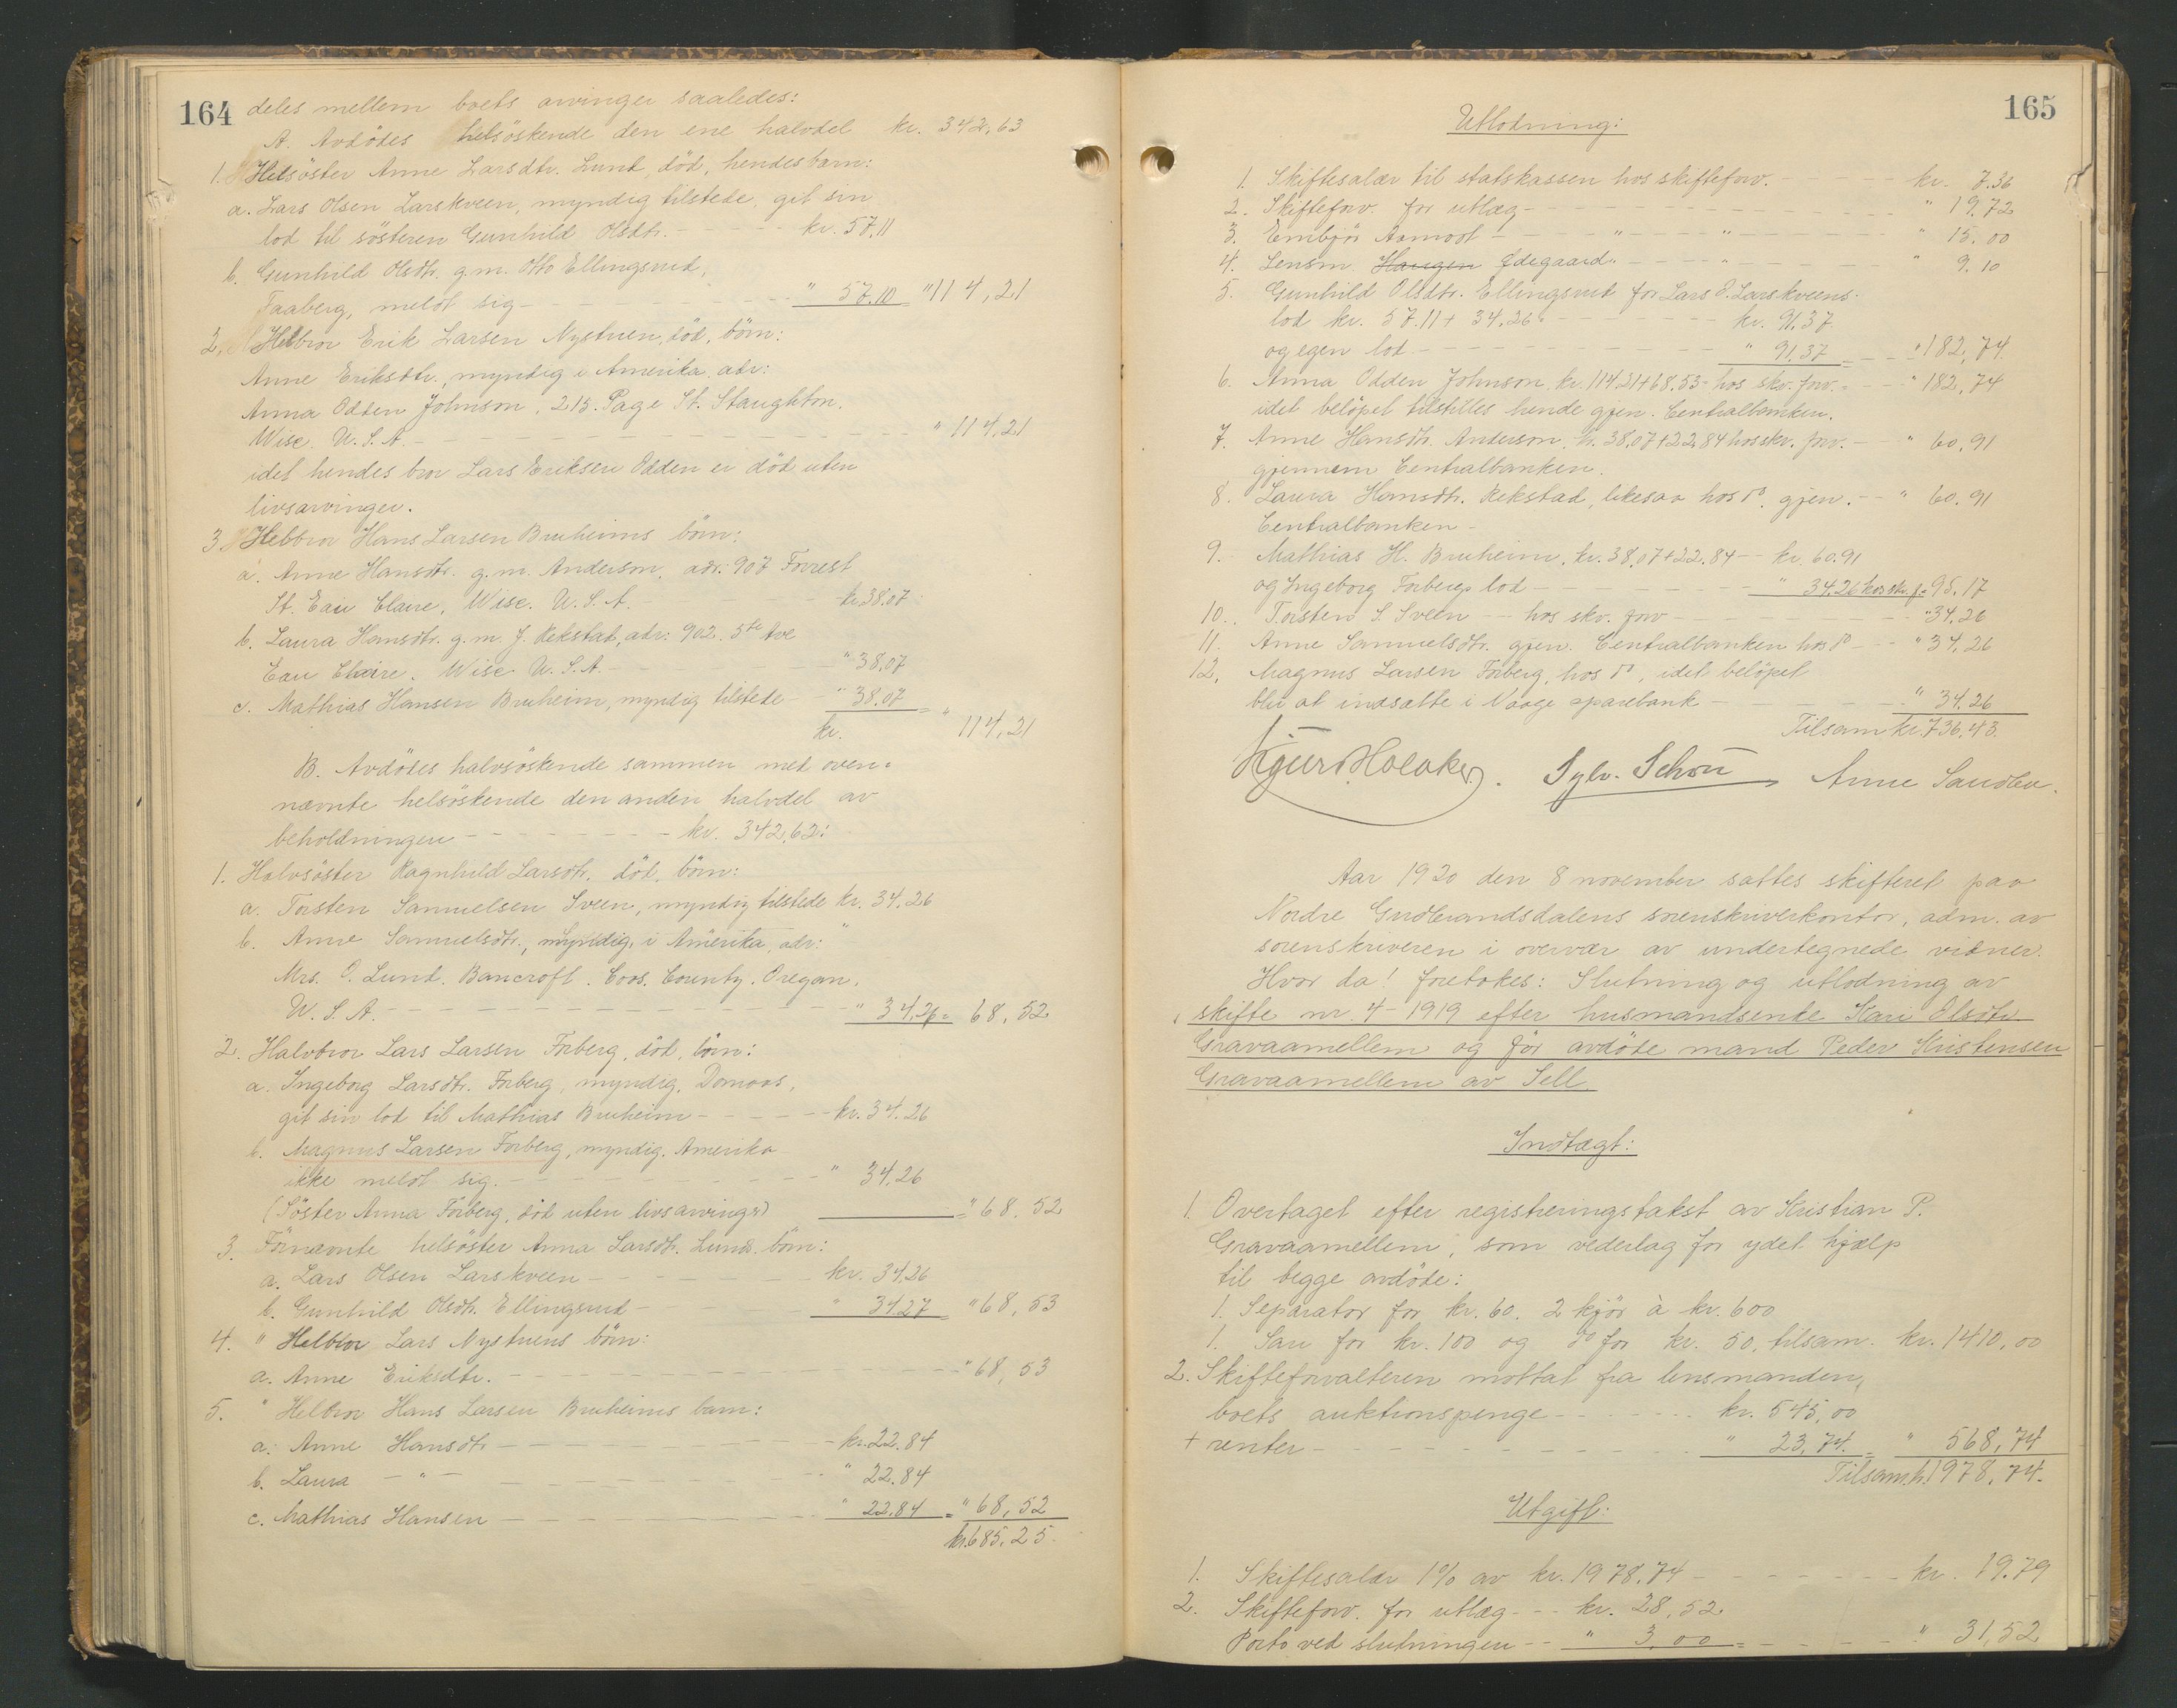 164
deles mellem boets arvinger saaledes:
A. Avdödes helsöskende den ene halvdel kr. 342,63
1. Helsöster Anne Larsdtr. Lund, död, hendes barn:
a. Lars Olsen Larskveen, myndig tilstede, git sin
lod til sösteren Gunhild Olsdtr. - - - - kr. 57,11
b. Gunhild Olsdtr. g.m. Otto Ellingsrud,
Faaberg, meldt sig - - - - " 57.10 = " 114,21
2. Helbror Erik Larsen Nystuen, död, börn:
Anne Eriksdtr., myndig i Amerika adr:
Anna Odden Johnson, 215. Page St. Staughton.
Wisc. U.S.A. - - - - " 114,21
idet hendes bror Lars Eriksen Odden er död uten
livsarvinger.
3. Helbror Hans Larsen Bruheims börn:
a. Anne Hansdtr. g.m. Anderson, adr: 907 Forrest
St. Eau Claire, Wisc. U.S.A. - - - - kr. 38.07
b. Laura Hansdtr. g.m. J. Rekstad, adr: 902. 5te Ave
Eau Claire. Wisc. U.S.A. - - - - " 38,07
c. Mathias Hansen Bruheim, myndig tilstede - " 38,07 = "
kr. 114,21
B. Avdödes halvsöskende sammen med oven-
nævnte helsöskende den anden halvdel av
beholdningen - - - - kr. 342,62:
1. Halvsöster Ragnhild Larsdtr. död, börn:
a. Torsten Samuelsen Sveen, myndig tilstede kr. 34.26
b. Anne Samuelsdtr., myndig, i Amerika, adr: "
Mrs. O. Lund. Bancroft. Coos. County. Oregan.
U.S.A. - - - - " 34,26 = 68,52
2. Halvbror Lars Larsen Forberg, död, börn:
a. Ingeborg Larsdtr. Forberg, myndig, Domaas,
git sin lod til Mathias Bruheim - - - - kr. 34.26
b. Magnus Larsen Forberg, myndig. Amerika
ikke meldt sig. - - - - " 34,26
(Söster Anna Forberg, död uten livsarvinger) = " 68,52
3. Fornævnte helsöster Anna Larsdtr. Lunds börn:
a. Lars Olsen Larskveen - - - - kr. 34,26
b. Gunhild Olsdtr. Ellingsrud - - - - " 34,27 = " 68,53
4. " Helbror Lars Nystuens börn:
a. Anne Eriksdtr. - - - - " 68,53
5. " Helbror Hans Larsen Bruheims barn:
a. Anne Hansdtr - - - - kr. 22.84
b. Laura - " - - - - - " 22.84
c. Mathias Hansen - - - - " 22,84 = " 68,52
kr. 685,25.
165
Utlodning:
1. Skiftesalær til statskassen hos skifteforv. - - - - kr. 7.36
2. Skifteforv. for utlæg - - - - " 19,72
3. Embjör Aamodt - - " - - " - - " 15,00
4. Lensm. Haugen Ödegaard " - - " - - " 9.10
5. Gunhild Olsdtr. Ellingsrud for Lars O. Larskveens
lod kr. 57.11 + 34,26 - - - - kr. 91,37
og egen lod - - - - " 91,37 = - - " 182,74
6. Anna Odden Johnson, kr. 114,21 + 68,53 - hos skr. forv. = - - " 182,74
idet belöpet tilstilles hende gjen. Centralbanken.
7. Anne Hansdtr. Anderson, kr. 38,07 + 22,84 hos skr. forv. - - " 60,91
gjennem Centralbanken.
8. Laura Hansdtr. Rekstad, likesaa hos do. gjen. - - " 60.91
Centralbanken -
9. Mathias H. Bruheim, kr. 38,07 + 22,84 - - kr. 60.91
og Ingeborg Forbergs lod - - - - " 34.26 hos skr. f. = 95,17
10. Torsten S. Sveen - - hos skr. forv - - - - " 34,26
11. Anne Samuelsdtr. gjen. Centralbanken hos do - - " 34,26
12. Magnus Larsen Forberg, hos do, idet belöpet
blir at indsætte i Vaage sparebank - - - - " 34.26
Tilsam kr. 736,43.
Sylv. Schou Anne Sandbu.
Aar 1920 den 8 november sattes skifteret paa
Nordre Gudbrandsdalens sorenskriverkontor, adm. av
sorenskriveren i overvær av undertegnede vidner.
Hvor da! foretokes: Slutning og utlodning av
skifte nr. 4 - 1919 efter husmandsenke Kari Olsdtr.
Gravaamellem og för avdöde mand Peder Kristensen
Gravaamellem av Sell.
Indtægt:
1. Overtaget efter registreringstakst av Kristian P.
Gravaamellem, som vederlag for ydet hjælp
til begge avdöde:
1. Separator for kr. 60. 2 kjör à kr. 600
1. Sau for kr. 100 og do for kr. 50, tilsam. kr. 1410,00
2. Skifteforvalteren mottat fra lensmanden,
boets auktionspenge - - - - kr. 545,00
+ renter - - - - " 23,74. = " 568,74
Tilsam. kr. 1978,74.
Utgift:
1. Skiftesalær 1% av kr. 1978,74 - - - - kr. 19.79
2. Skifteforv. for utlæg - - - kr. 28,52
Porto ved slutningen - - " 3,00 = - - - - " 31,52